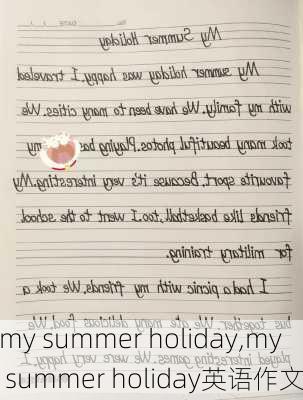 My Summer Holiday
My summer holiday was happy. I traveled
with my family. We have been to many cities. We
took many beautiful photos. Playing my
favourite sport. Because it's very interesting. My
friends like basketball, too. I went to the school
for military training.
I had a picnic with my friends. We took a
bus together. We ate many delicious food. We
played interesting games. We were very happy. I
my summer holiday,my
summer holiday英语作文